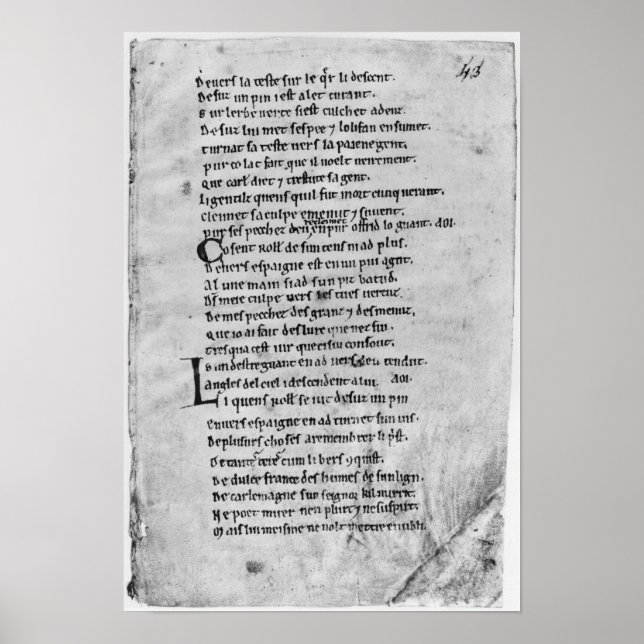 43
Devers la teste sur le q̃r li descent.
Desuz un pin i est alet curant.
Sur lerbe verte siest culchet adenz.
Desuz lui met sespee ⁊ lolifan ensumet.
Turnat sa teste vers la paiene gent.
Pur co lat fait que il voelt veirement.
Que carł diet ⁊ trestute sa gent.
Li gentilz quens quil fut mort cunquerant.
Cleimet sa culpe e menut ⁊ suvent.
recleimet
Pur ses pecchez deu en pur offrid lo guant. AOI.
Co sent Roll̃ de sun tens ni ad plus.
Devers espaigne est en un pui agut.
Al une main si ad sun piz batud.
Ds̃ meie culpe vers les tues vertuz.
De mes pecchez des granz ⁊ des menuz.
Que io ai fait des lure que nez fui.
Tresqua cest iur que ci sui consout.
Sun destre guant en ad vers deu tendut.
Angles del ciel i descendent a lui. AOI.
Li quens Roll̃ se iut desuz un pin
Envers espaigne en ad turnet sun vis.
De plusurs choses a remembrer li p̃st.
De tantes teres cum li bers ꝯquist.
De dulce france des humes de sun lign.
De carlemagne sun seignor kil nurrit.
Ne poet muer nen plurt ⁊ ne suspirt.
Mais lui meisme ne volt mettre en ubli.